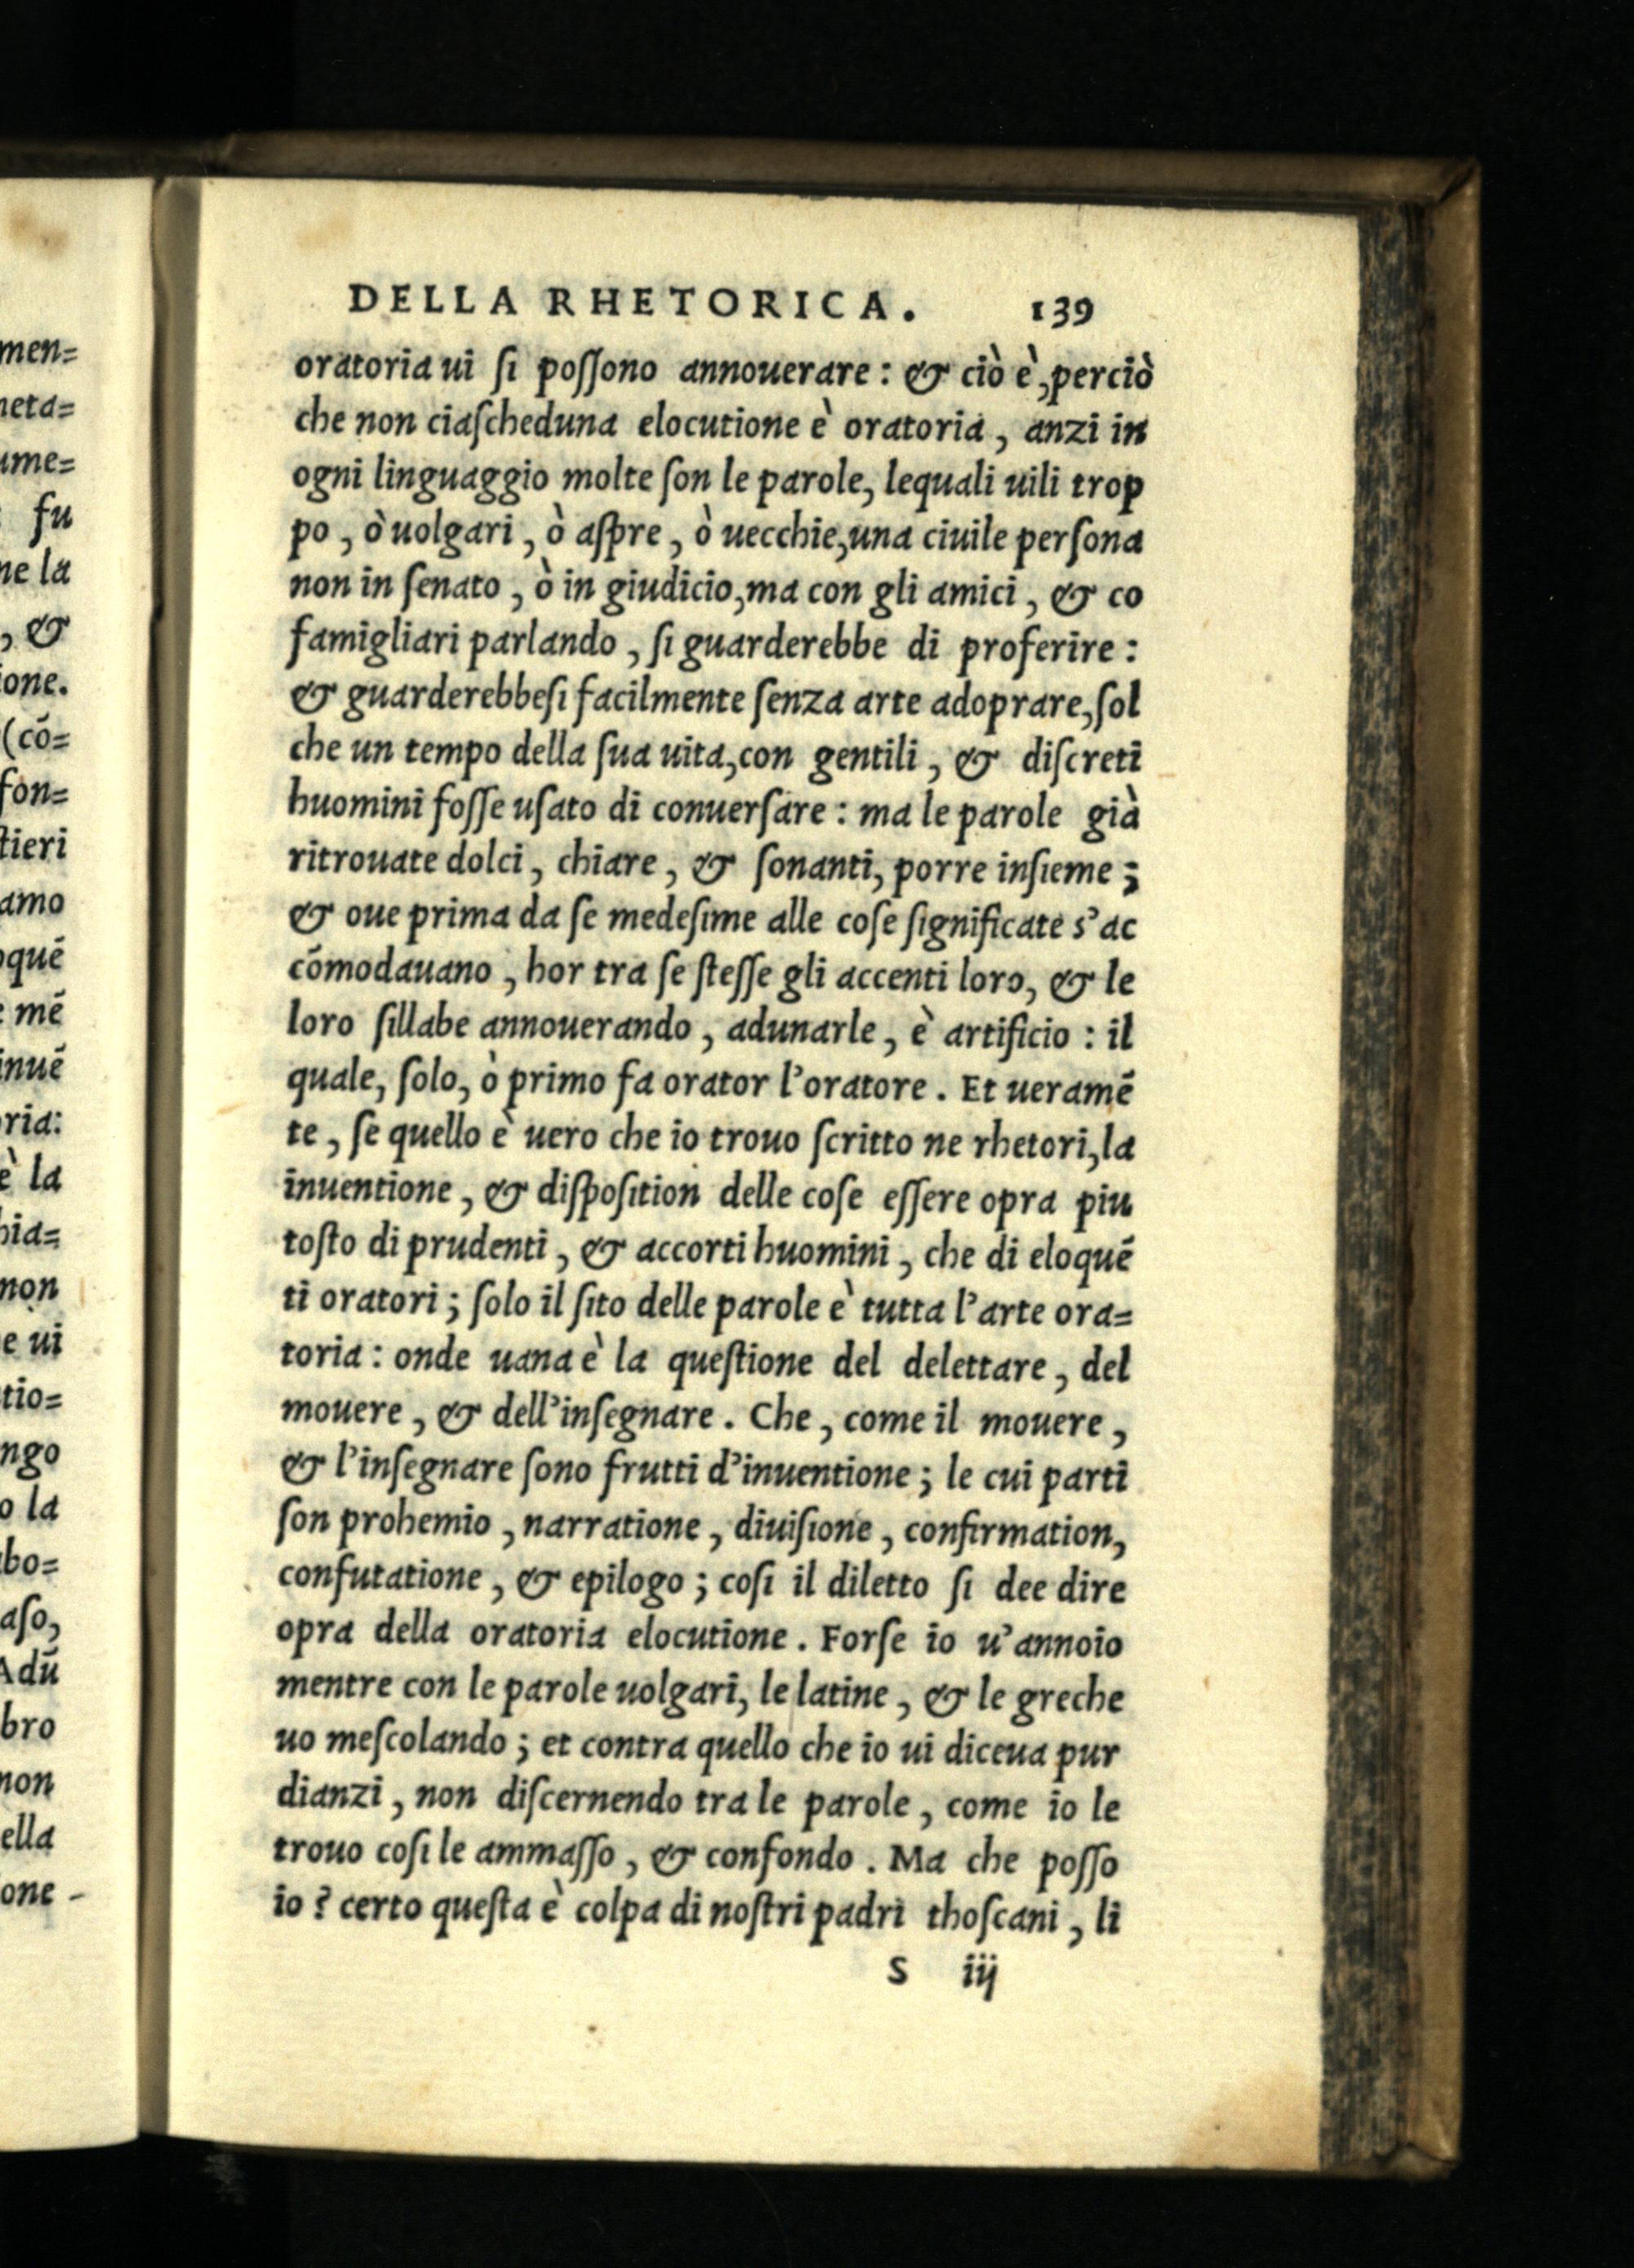 men=
neta=
ume=
fu
ne la
, &
ione.
(cō=
fon=
tieri
amo
oquē
mē
inuē
ria:
è la
hia=
non
e ui
tio=
ngo
o la
bo=
aſo,
Adū
bro
non
ella
one -
DELLA RHETORICA. 139
oratoria ui ſi poſſono annouerare: & ciò è, perciò
che non ciaſcheduna elocutione è oratoria, anzi in
ogni linguaggio molte ſon le parole, lequali uili trop
po, ò uolgari, ò aſpre, ò uecchie, una ciuile perſona
non in ſenato, ò in giudicio, ma con gli amici, & co
famigliari parlando, ſi guarderebbe di proferire:
& guarderebbeſi facilmente ſenza arte adoprare, ſol
che un tempo della ſua uita, con gentili, & diſcreti
huomini foſſe uſato di conuerſare: ma le parole già
ritrouate dolci, chiare, & ſonanti, porre inſieme;
& oue prima da ſe medeſime alle coſe ſignificate s'ac
cōmodauano, hor tra ſe ſteſſe gli accenti loro, & le
loro ſillabe annouerando, adunarle, è artificio: il
quale, ſolo, ò primo fa orator l'oratore. Et ueramē
te, ſe quello è uero che io trouo ſcritto ne rhetori, la
inuentione, & diſpoſition delle coſe eſſere opra piu
toſto di prudenti, & accorti huomini, che di eloquē
ti oratori; ſolo il ſito delle parole è tutta l'arte ora=
toria: onde uana è la queſtione del delettare, del
mouere, & dell'inſegnare. Che, come il mouere,
& l'inſegnare ſono frutti d'inuentione; le cui parti
ſon prohemio, narratione, diuiſione, confirmation,
confutatione, & epilogo; coſi il diletto ſi dee dire
opra della oratoria elocutione. Forſe io u'annoio
mentre con le parole uolgari, le latine, & le greche
uo meſcolando; et contra quello che io ui diceua pur
dianzi, non diſcernendo tra le parole, come io le
trouo coſi le ammaſſo, & confondo. Ma che poſſo
io? certo queſta è colpa di noſtri padri thoſcani, li
S iij